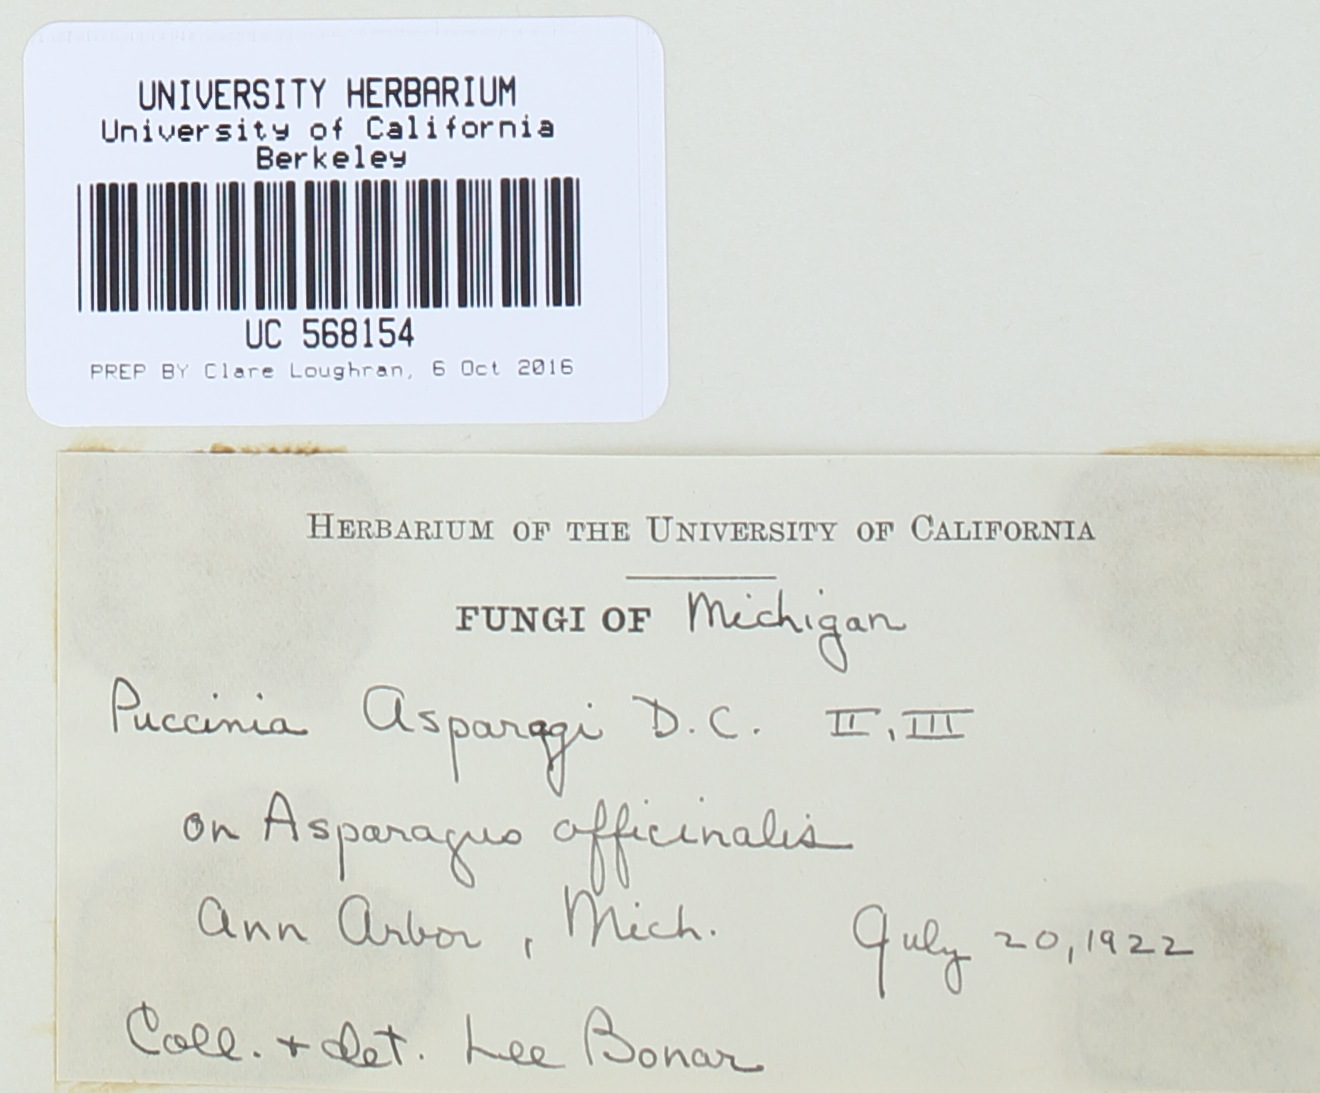 UNIVERSITY HERBARIUM
University of California
Berkeley
UC 568154
PREP BY Clare Loughran, 6 Oct 2016
HERBARIUM OF THE UNIVERSITY OF CALIFORNIA
FUNGI OF Michigan
Puccinia Asparagi D.C. II, III
on Asparagus officinalis
Ann Arbor, Mich. July 20, 1922
Coll. + det. Lee Bonar